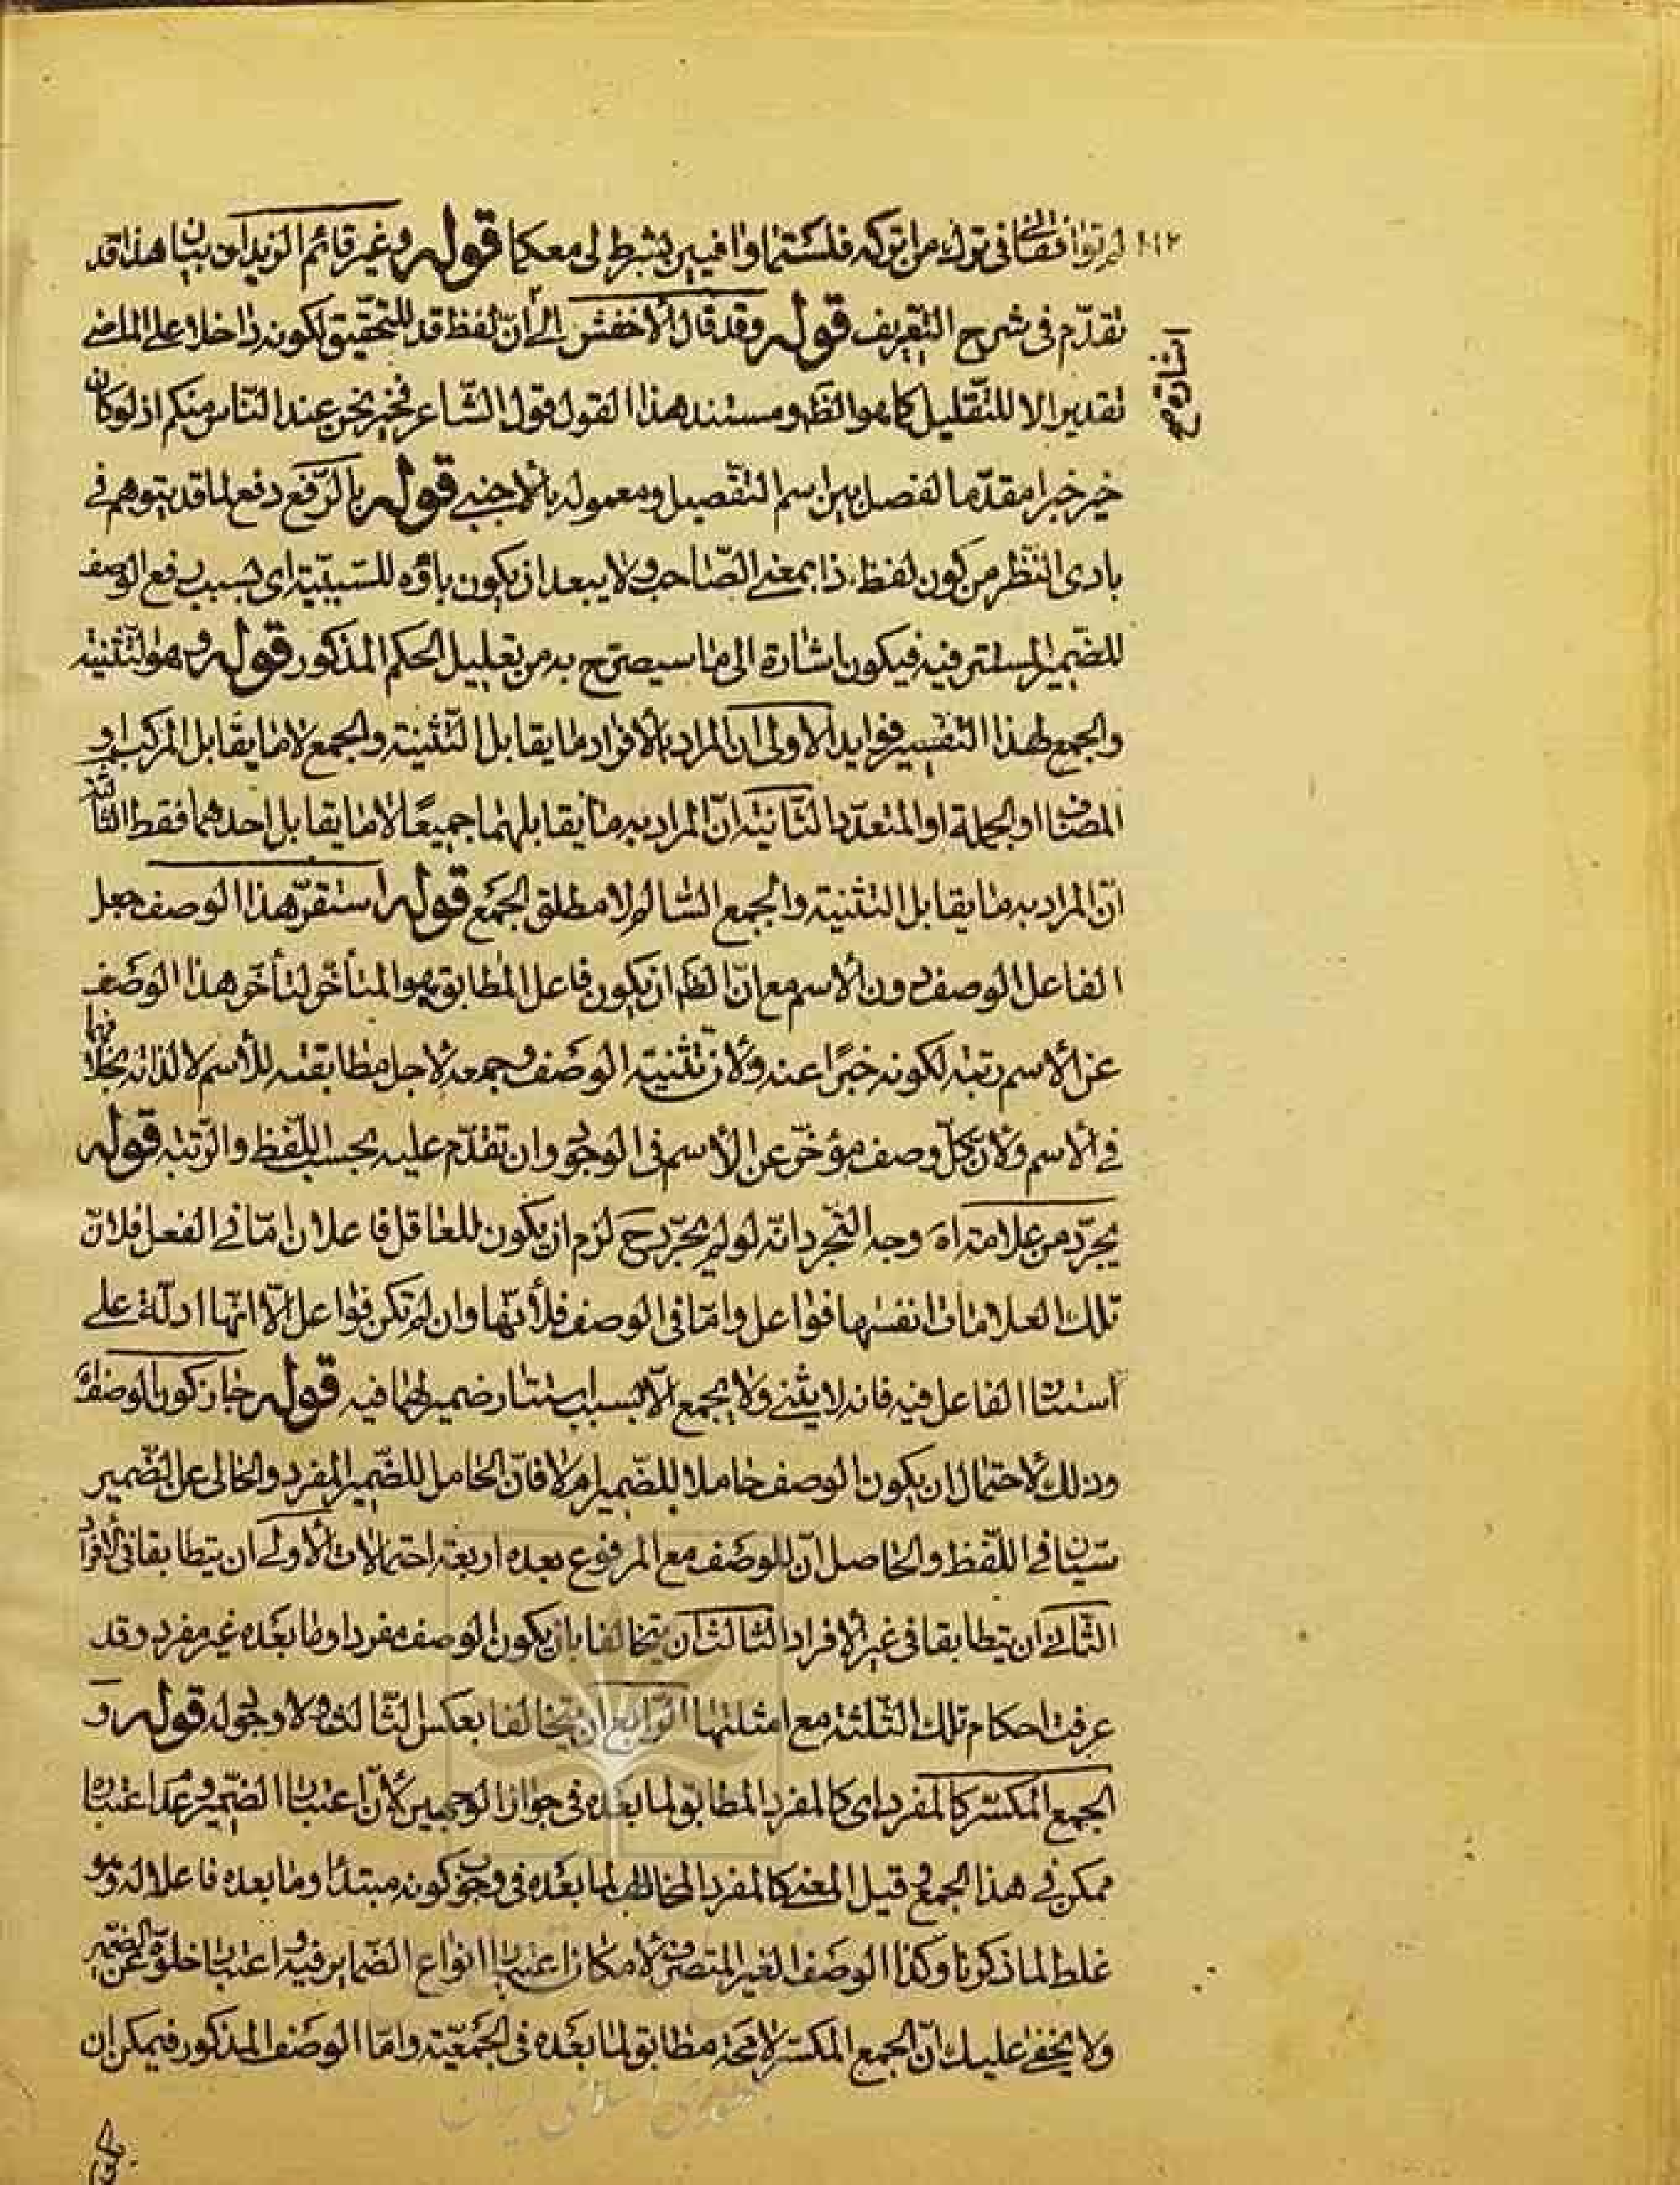 لم توافقانى فى ترك من اتركه فلستما وافيين بشرط لى معكما قوله وغير قائم الزيدان بيان هذا قد
تقدّم فى شرح التعريف قوله وقد قال الأخفش الى أنّ لفظ قد للتحقيق لكونه داخلا على الماضى
تقديرا لا للتقليل كما هو الظ ومستند هذا القول قول الشاعر فخير نحن عند النّاس منكم اذ لو كان
خير خبرا مقدّما لفصل بين اسم التفضيل ومعموله بالأجنبى قوله بالرّفع دفع لما قد يتوهم فى
بادى النظر من كون لفظ ذا بمعنى الصّاحب ولا يبعد ان يكون باؤه للسّببيّة اى بسبب رفع الوصف
للضّمير المستتر فيه فيكون اشارة الى ما سيصرّح به من تعليل الحكم المذكور قوله وهو التثنية
والجمع لهذا التفسير فوايد الأولى ان المراد بالأفراد ما يقابل التّثنية والجمع لا ما يقابل المركب او
المضاف او الجملة او المتعدّد الثّانية انّ المراد به ما يقابلهما جميعًا لا ما يقابل احدهما فقط الثالثة
انّ المراد به ما يقابل التثنية والجمع السّالم لا مطلق الجمع قوله استقرّ هذا الوصف جعل
الفاعل الوصف دون الأسم مع انّ الظ ان يكون فاعل المطابق هو المتأخّر لتأخّر هذا الوصف
عن الأسم رتبة لكونه خبرًا عنه ولأن تثنية الوصف وجمعه لأجل مطابقته للأسم لا لذاته بخلافهما
فى الأسم ولأن كلّ وصف مؤخّر عن الأسم فى الوجود وان تقدّم عليه بحسب اللّفظ والرّتبة قوله
يجرّد من علامة اه وجه التّجرد انّه لو لم يجرّد ح لزم ان يكون للعاقل فاعلان امّا فى الفعل فلانّ
تلك العلامات انفسها فواعل وامّا فى الوصف فلأنّها وان لم تكن فواعل الّا انّها ادلّة على
استتار الفاعل فيه فانه لا يثنى ولا يجمع الّا بسبب استتار ضميرهما فيه قوله جاز كون الوصف اه
وذلك لاحتمال ان يكون الوصف حاملا للضّمير ام لا فانّ الحامل للضّمير المفرد والخالى عن الضّمير
سيّان فى اللّفظ والحاصل انّ للوصف مع المرفوع بعده اربعة احتمالات الأولى ان يتطابقا فى الأفراد
الثّانى ان يتطابقا فى غير الأفراد الثّالث ان يتخالفا بان يكون الوصف مفردا وما بعده غير مفرد وقد
عرفت احكام تلك الثّلثة مع امثلتها الرّابع ان يتخالفا بعكس الثّالث ولا وجود له قوله و
الجمع المكسّر كالمفرد اى كالمفرد المطابق لما بعده فى جواز الوجهين لأنّ اعتبار الضّمير وعدم اعتباره
ممكن فى هذا الجمع وقيل المعنى كالمفرد المخالف لما بعده فى وجوب كونه مبتدأ وما بعده فاعلا له وهو
غلط لما ذكرنا وكذا الوصف الغير المتصرف لامكان اعتبار انواع الضّماير فيه واعتبار خلوّه عن الضّمير
ولا يخفى عليك انّ الجمع المكسّر لا مح مطابق لما بعده فى الجمعيّة وامّا الوصف المذكور فيمكن ان